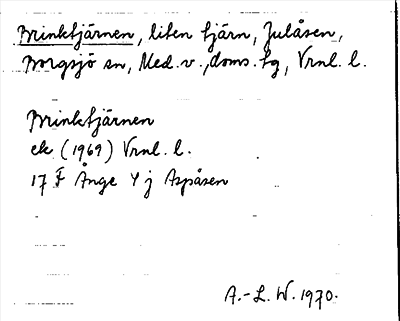 Brinktjärnen, liten tjärn, Julåsen,
Borgsjö sn, Med. v., doms. tg, Vrnl. l.
Brinktjärnen
ek (1969) Vrnl. l.
17 F Ånge 4 j Aspåsen
A.-L. W. 1970.